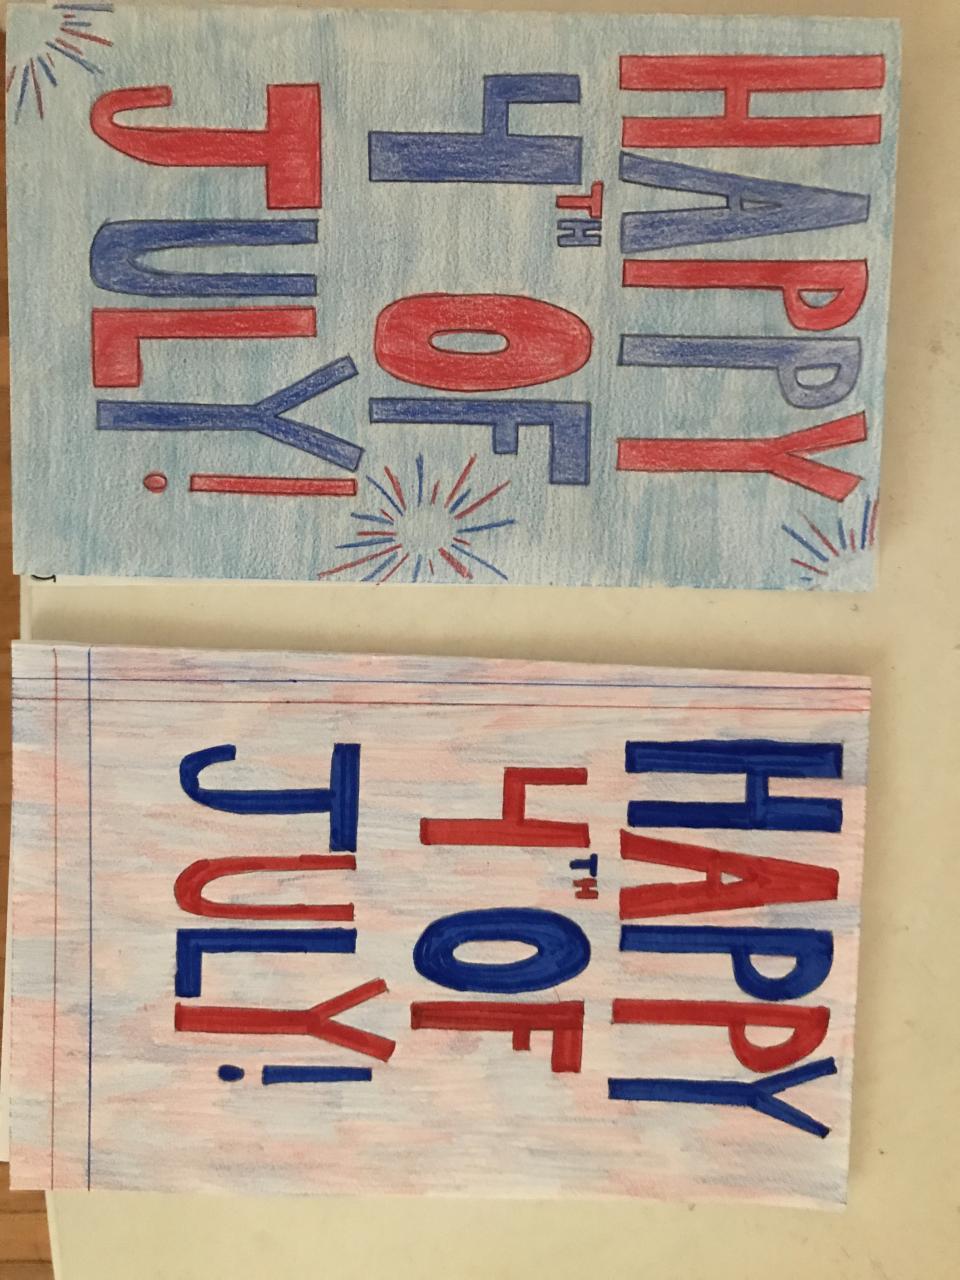 HAPPY
4TH OF
JULY!
HAPPY
4TH OF
JULY!